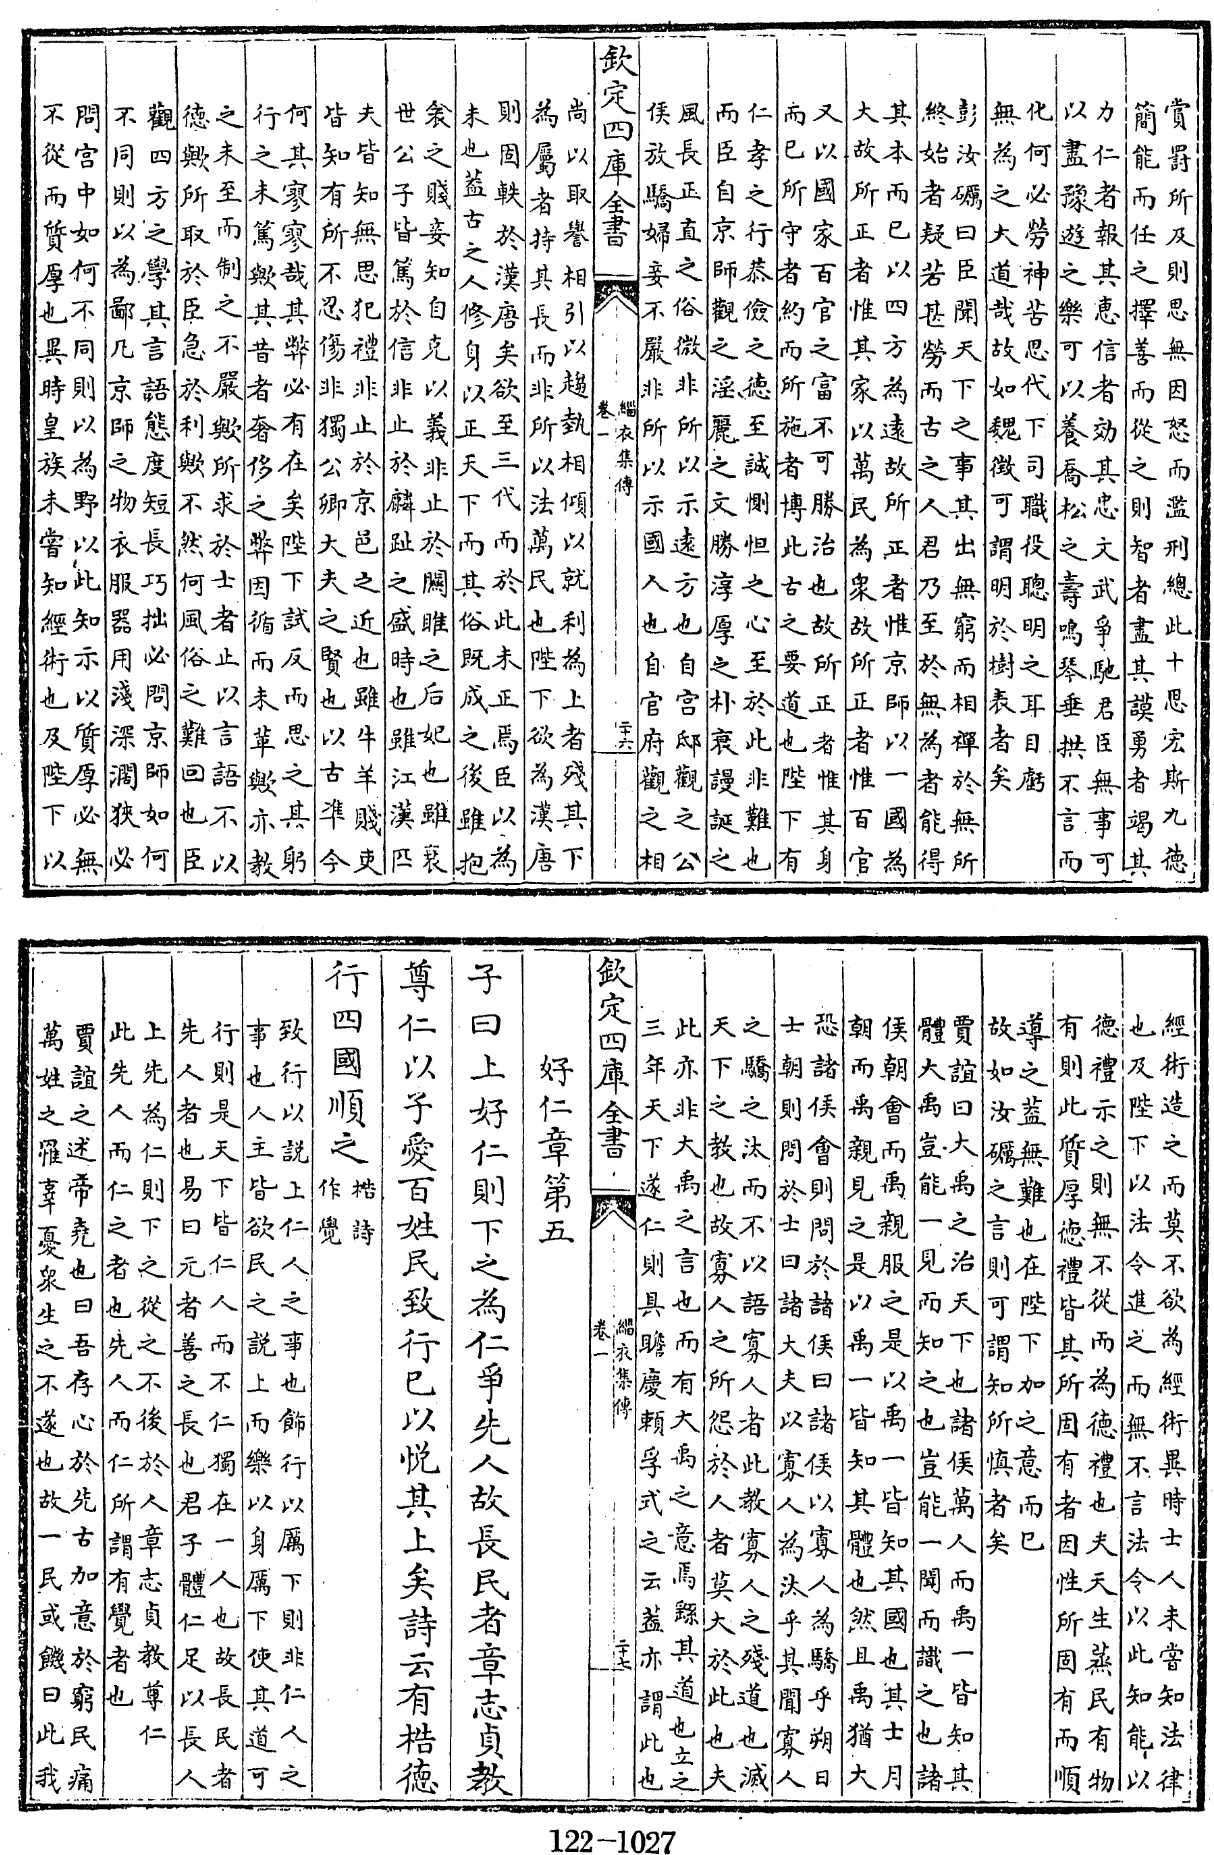 賞罰所及則思無因怒而濫刑總此十思宏斯九德
簡能而任之擇善而從之則智者盡其謨勇者竭其
力仁者報其惠信者効其忠文武爭馳君臣無事可
以盡豫遊之樂可以養喬松之壽鳴琴垂拱不言而
化何必勞神苦思代下司職役聰明之耳目虧
無為之大道哉故如魏徵可謂明於樹表者矣
彭汝礪曰臣聞天下之事其出無窮而相禪於無所
終始者疑若甚勞而古之人君乃至於無為者能得
其本而已以四方為遠故所正者惟京師以一國為
大故所正者惟其家以萬民為衆故所正者惟百官
又以國家百官之富不可勝治也故所正者惟其身
而已所守者約而所施者博此古之要道也陛下有
仁孝之行恭儉之德至誠惻怛之心至於此非難也
而臣自京師觀之淫麗之文勝淳厚之朴衰謾誕之
風長正直之俗微非所以示遠方也自宫邸觀之公
侯放驕婦妾不嚴非所以示國人也自官府觀之相
欽定四庫全書
緇衣集傳
卷一
二十六
尚以取譽相引以趨埶相傾以就利為上者殘其下
為屬者持其長而非所以法萬民也陛下欲為漢唐
則固軼於漢唐矣欲至三代而於此未正焉臣以為
未也葢古之人修身以正天下而其俗既成之後雖抱
衾之賤妾知自克以義非止於關雎之后妃也雖衰
世公子皆篤於信非止於麟趾之盛時也雖江漢匹
夫皆知無思犯禮非止於京邑之近也雖牛羊賤吏
皆知有所不忍傷非獨公卿大夫之賢也以古準今
何其寥寥哉其弊必有在矣陛下試反而思之其躬
行之未篤歟其昔者奢侈之弊因循而未革歟亦教
之未至而制之不嚴歟所求於士者止以言語不以
德歟所取於臣急於利歟不然何風俗之難回也臣
觀四方之學其言語態度短長巧拙必問京師如何
不同則以為鄙凡京師之物衣服器用淺深濶狹必
問宫中如何不同則以為野以此知示以質厚必無
不從而質厚也異時皇族未嘗知經術也及陛下以
經術造之而莫不欲為經術異時士人未嘗知法律
也及陛下以法令進之而無不言法令以此知能以
德禮示之則無不從而為德禮也夫天生蒸民有物
有則此質厚德禮皆其所固有者因性所固有而順
導之葢無難也在陛下加之意而已
故如汝礪之言則可謂知所慎者矣
賈誼曰大禹之治天下也諸侯萬人而禹一皆知其
體大禹豈能一見而知之也豈能一聞而識之也諸
侯朝會而禹親服之是以禹一皆知其國也其士月
朝而禹親見之是以禹一皆知其體也然且禹猶大
恐諸侯會則問於諸侯曰諸侯以寡人為驕乎朔日
士朝則問於士曰諸大夫以寡人為汰乎其聞寡人
之驕之汰而不以語寡人者此教寡人之殘道也滅
天下之教也故寡人之所怨於人者莫大於此也夫
此亦非大禹之言也而有大禹之意焉繇其道也立之
三年天下遂仁則具瞻慶頼孚式之云葢亦謂此也
欽定四庫全書
緇衣集傳
卷一
二十七
好仁章第五
子曰上好仁則下之為仁爭先人故長民者章志貞教
尊仁以子愛百姓民致行己以悅其上矣詩云有梏德
行四國順之梏詩作覺
致行以説上仁人之事也飾行以厲下則非仁人之
事也人主皆欲民之説上而樂以身厲下使其道可
行則是天下皆仁人而不仁獨在一人也故長民者
先人者也易曰元者善之長也君子體仁足以長人
上先為仁則下之從之不後於人章志貞教尊仁
此先人而仁之者也先人而仁所謂有覺者也
賈誼之述帝堯也曰吾存心於先古加意於窮民痛
萬姓之罹辜憂衆生之不遂也故一民或饑曰此我
122-1027